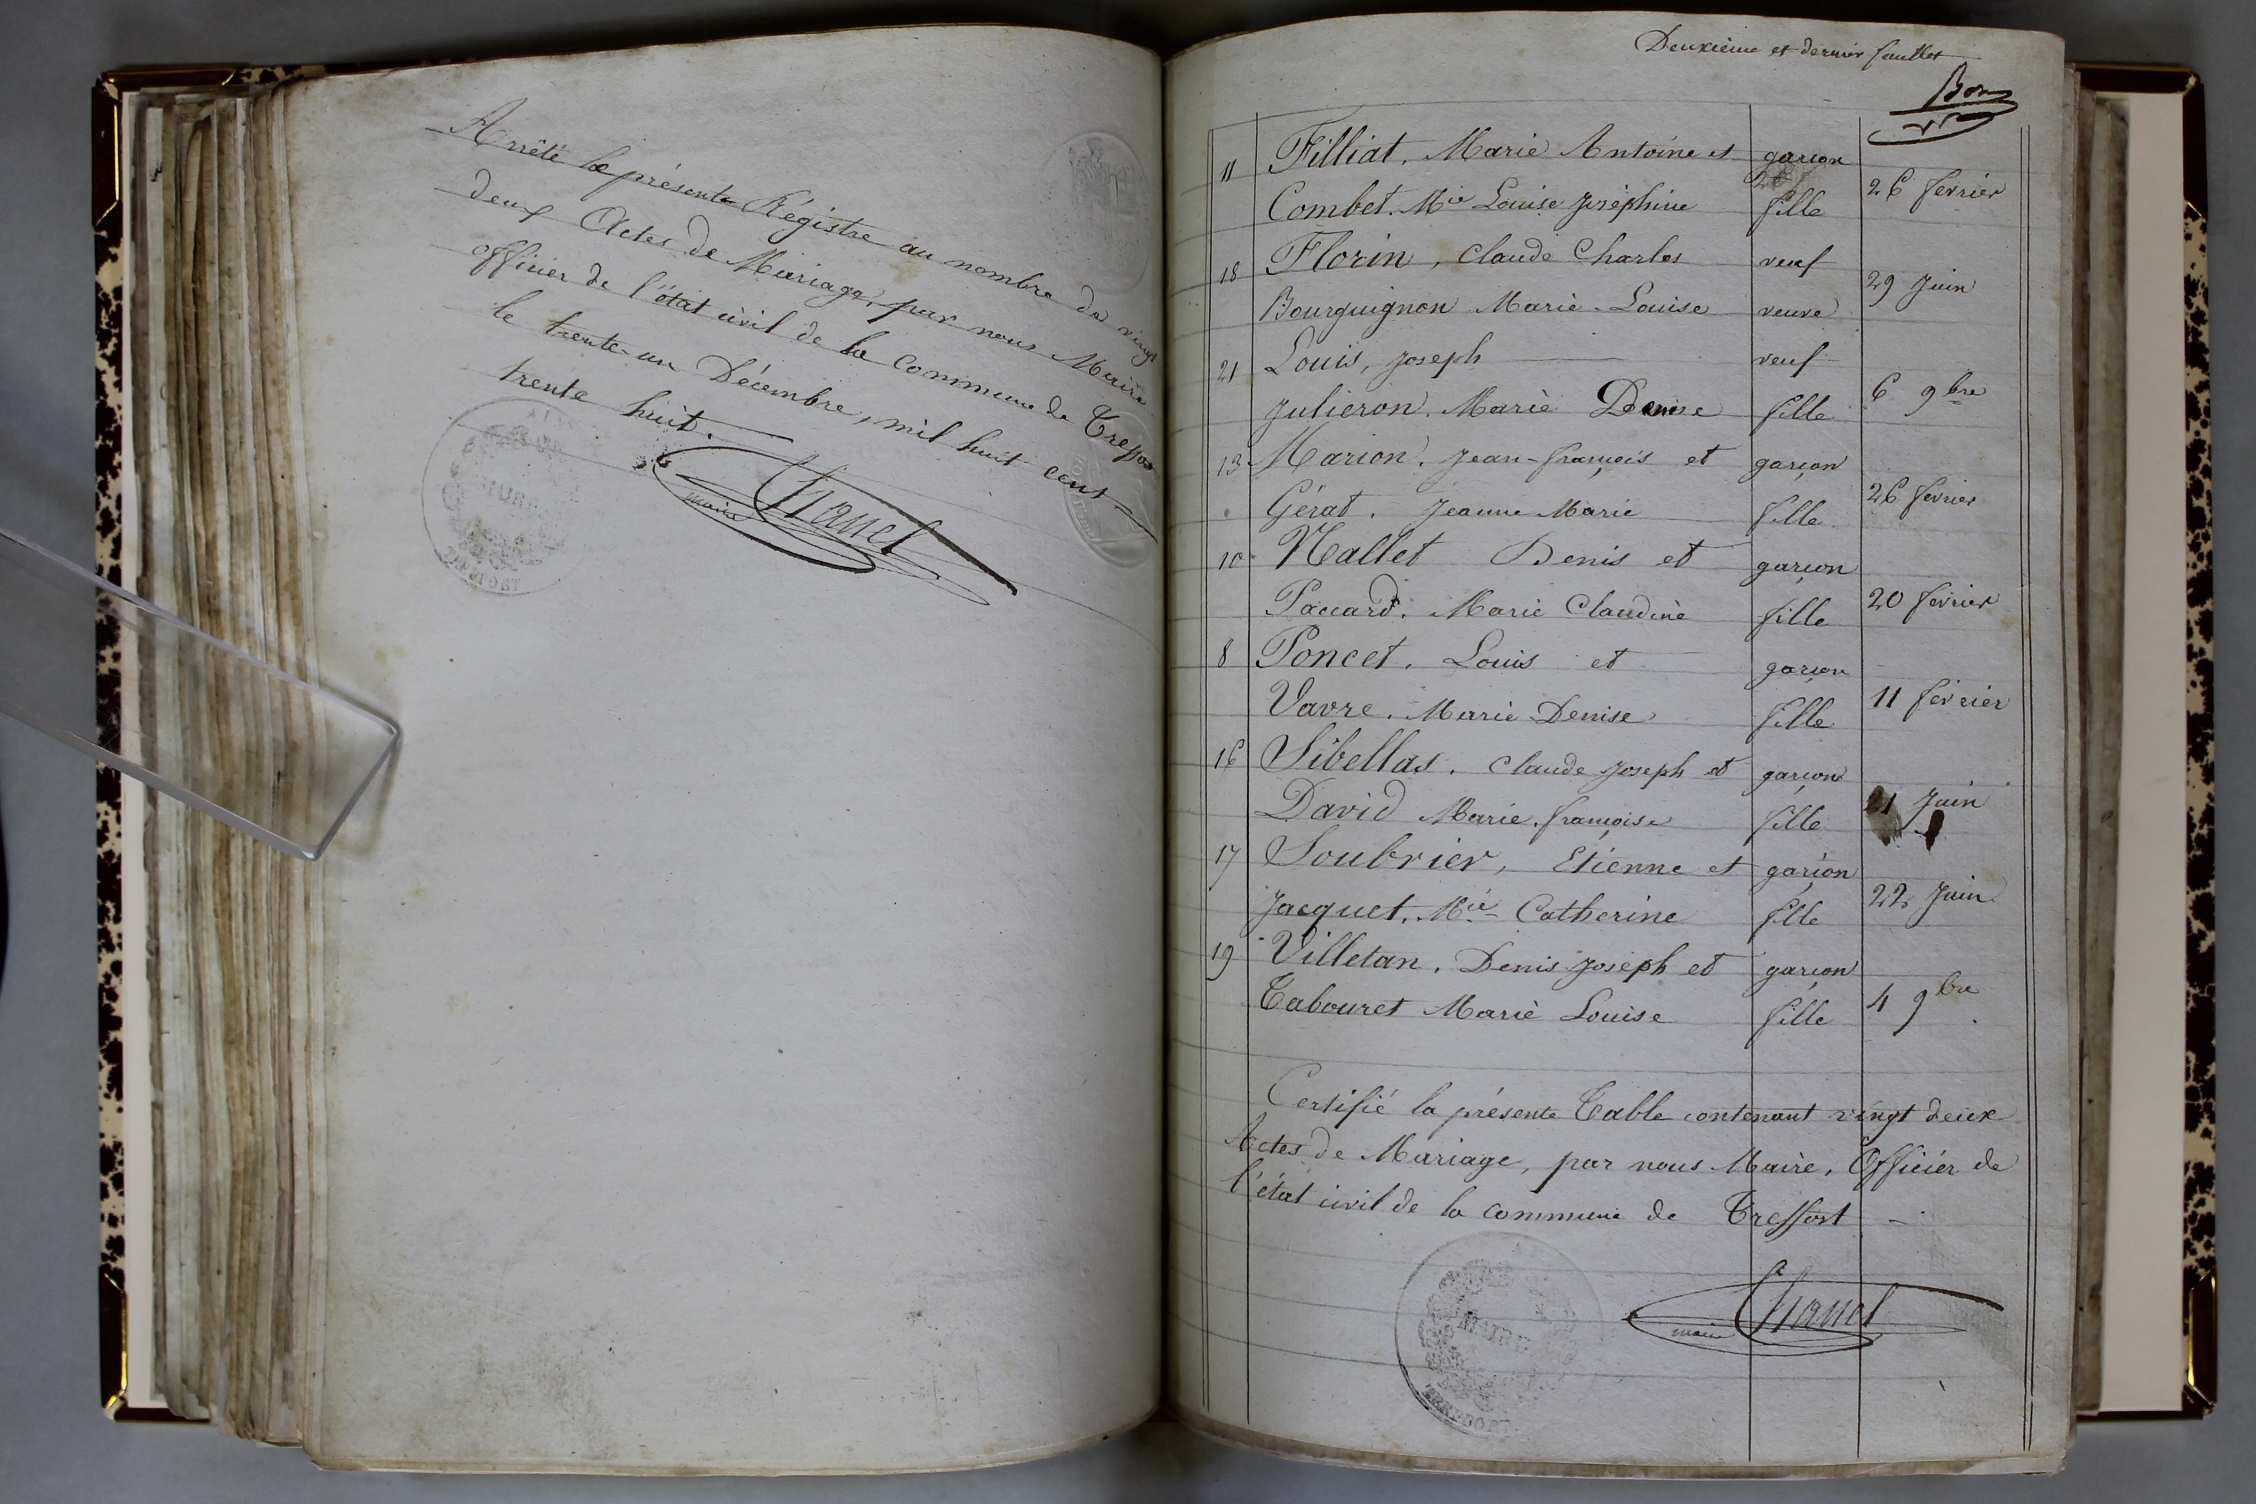 Arrêté le présente Régistre au nombre de vingt
deux Actes de Mariage, par nous Maire
officier de l'état civil de la Commune de Treffor
le trente-un Décembre, mil huit cent
trente huit.
Chanel
maire
Deuxième et dernier feuillet
Bon
11 Filliat, Marie Antoine et garçon
Combet, Mie Louise Joséphine fille 26 fevrier
18 Florin, Claude Charles veuf
Bourguignon Marie-Louise veuve 29 Juin
21 Louis, Joseph veuf
Julieron, Marie Denise fille 6 9bre
13 Marion, Jean-françois et garçon
Gérat, Jeanne Marie fille 26 fevrier
10 Mallet Denis et garçon
Paccard, Marie Claudine fille 20 fevrier
8 Poncet, Louis et garçon
Vavre, Marie Denise fille 11 fevrier
16 Sibellas, Claude Joseph et garçon
David Marie, françoise fille 21 Juin
17 Soubrier, Etienne et garçon
Jacquet, Mie Catherine fille 22 Juin
19 Villetan, Denis Joseph et garçon
Tabouret Marie Louise fille 4 9bre
Certifié la présente Table contenant vingt deux
Actes de Mariage, par nous Maire, Officier de
l'état civil de la commune de Treffort
MAIRIE
Chanel
maire